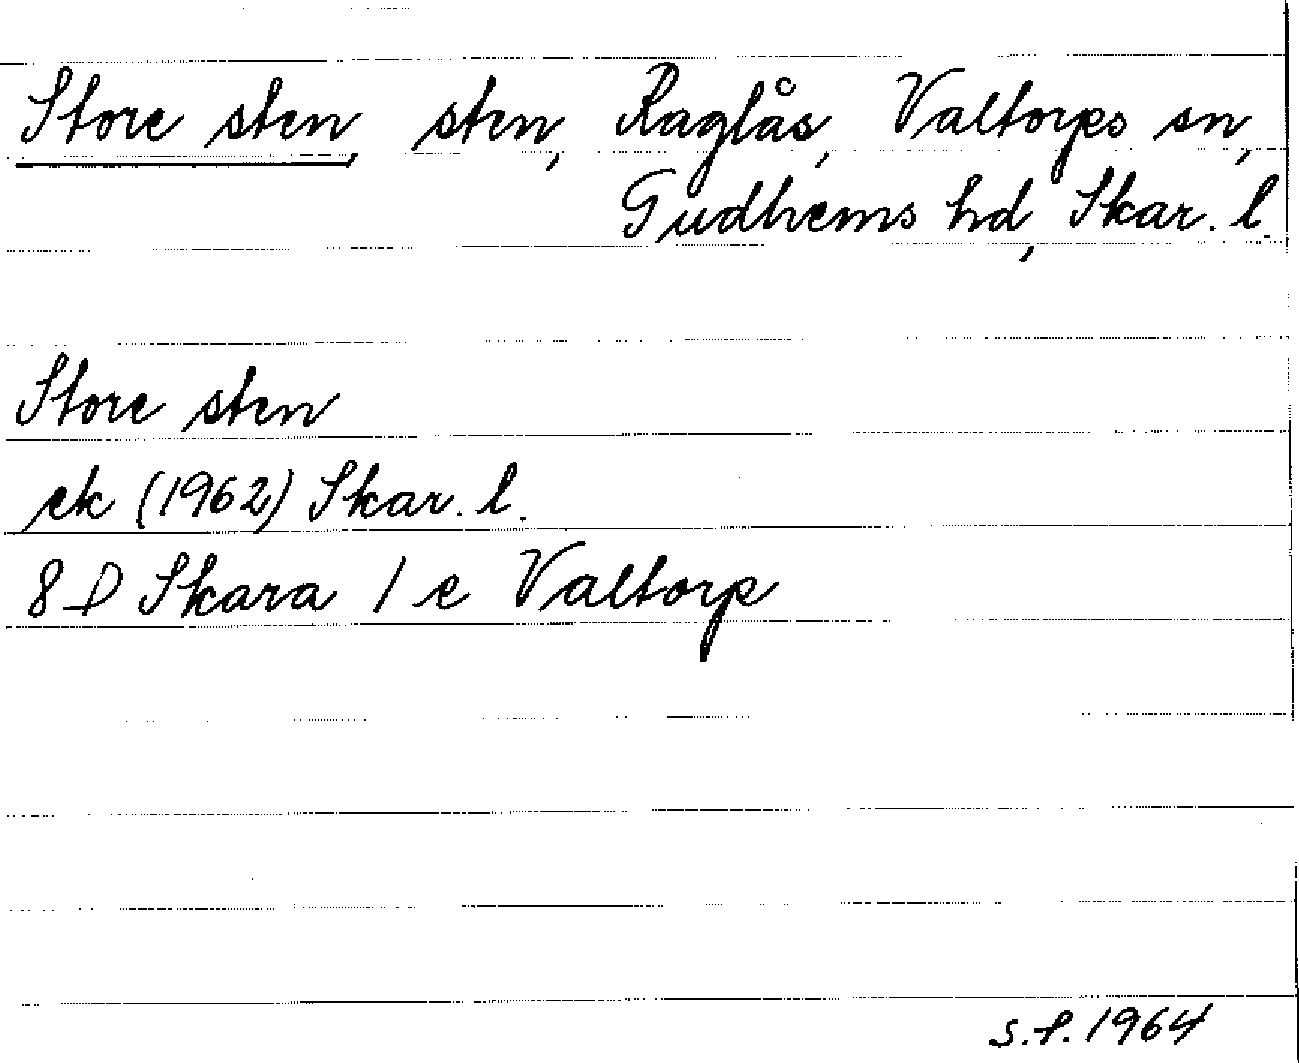 Store sten, sten, Raglås, Valtorps sn,
Gudhems hd, Skar. l.
Store sten
ek (1962) Skar. l.
8 D Skara 1 e Valtorp
S.F. 1964